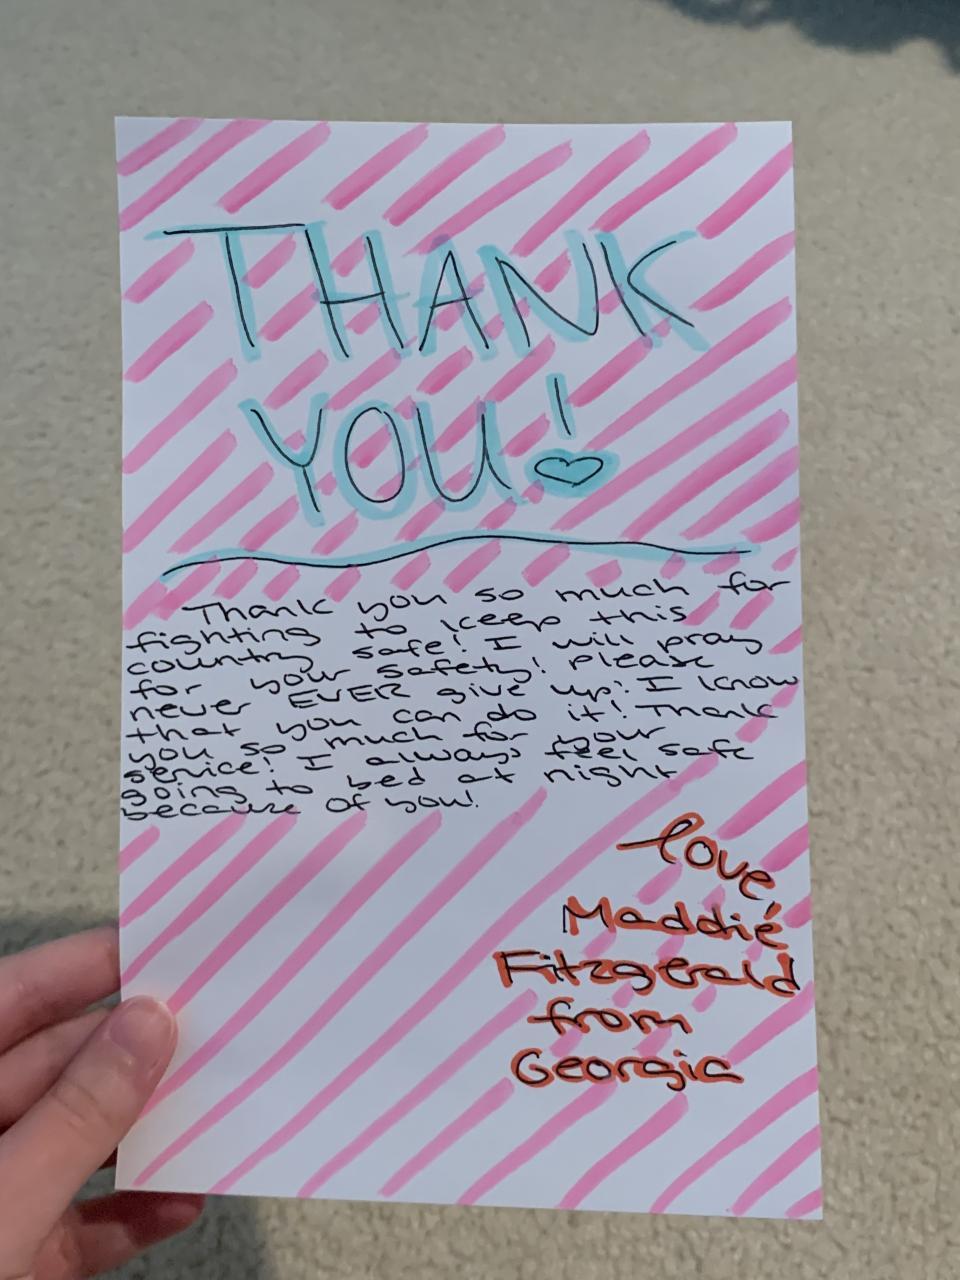 THANK
YOU!
Thank you so much for
fighting to keep this
country safe! I will pray
for your safety! Please
never EVER give up! I know
that you can do it! Thank
you so much for your
service! I always feel safe
going to bed at night
because of you!
love,
Maddie
Fitzgerald
from
Georgia